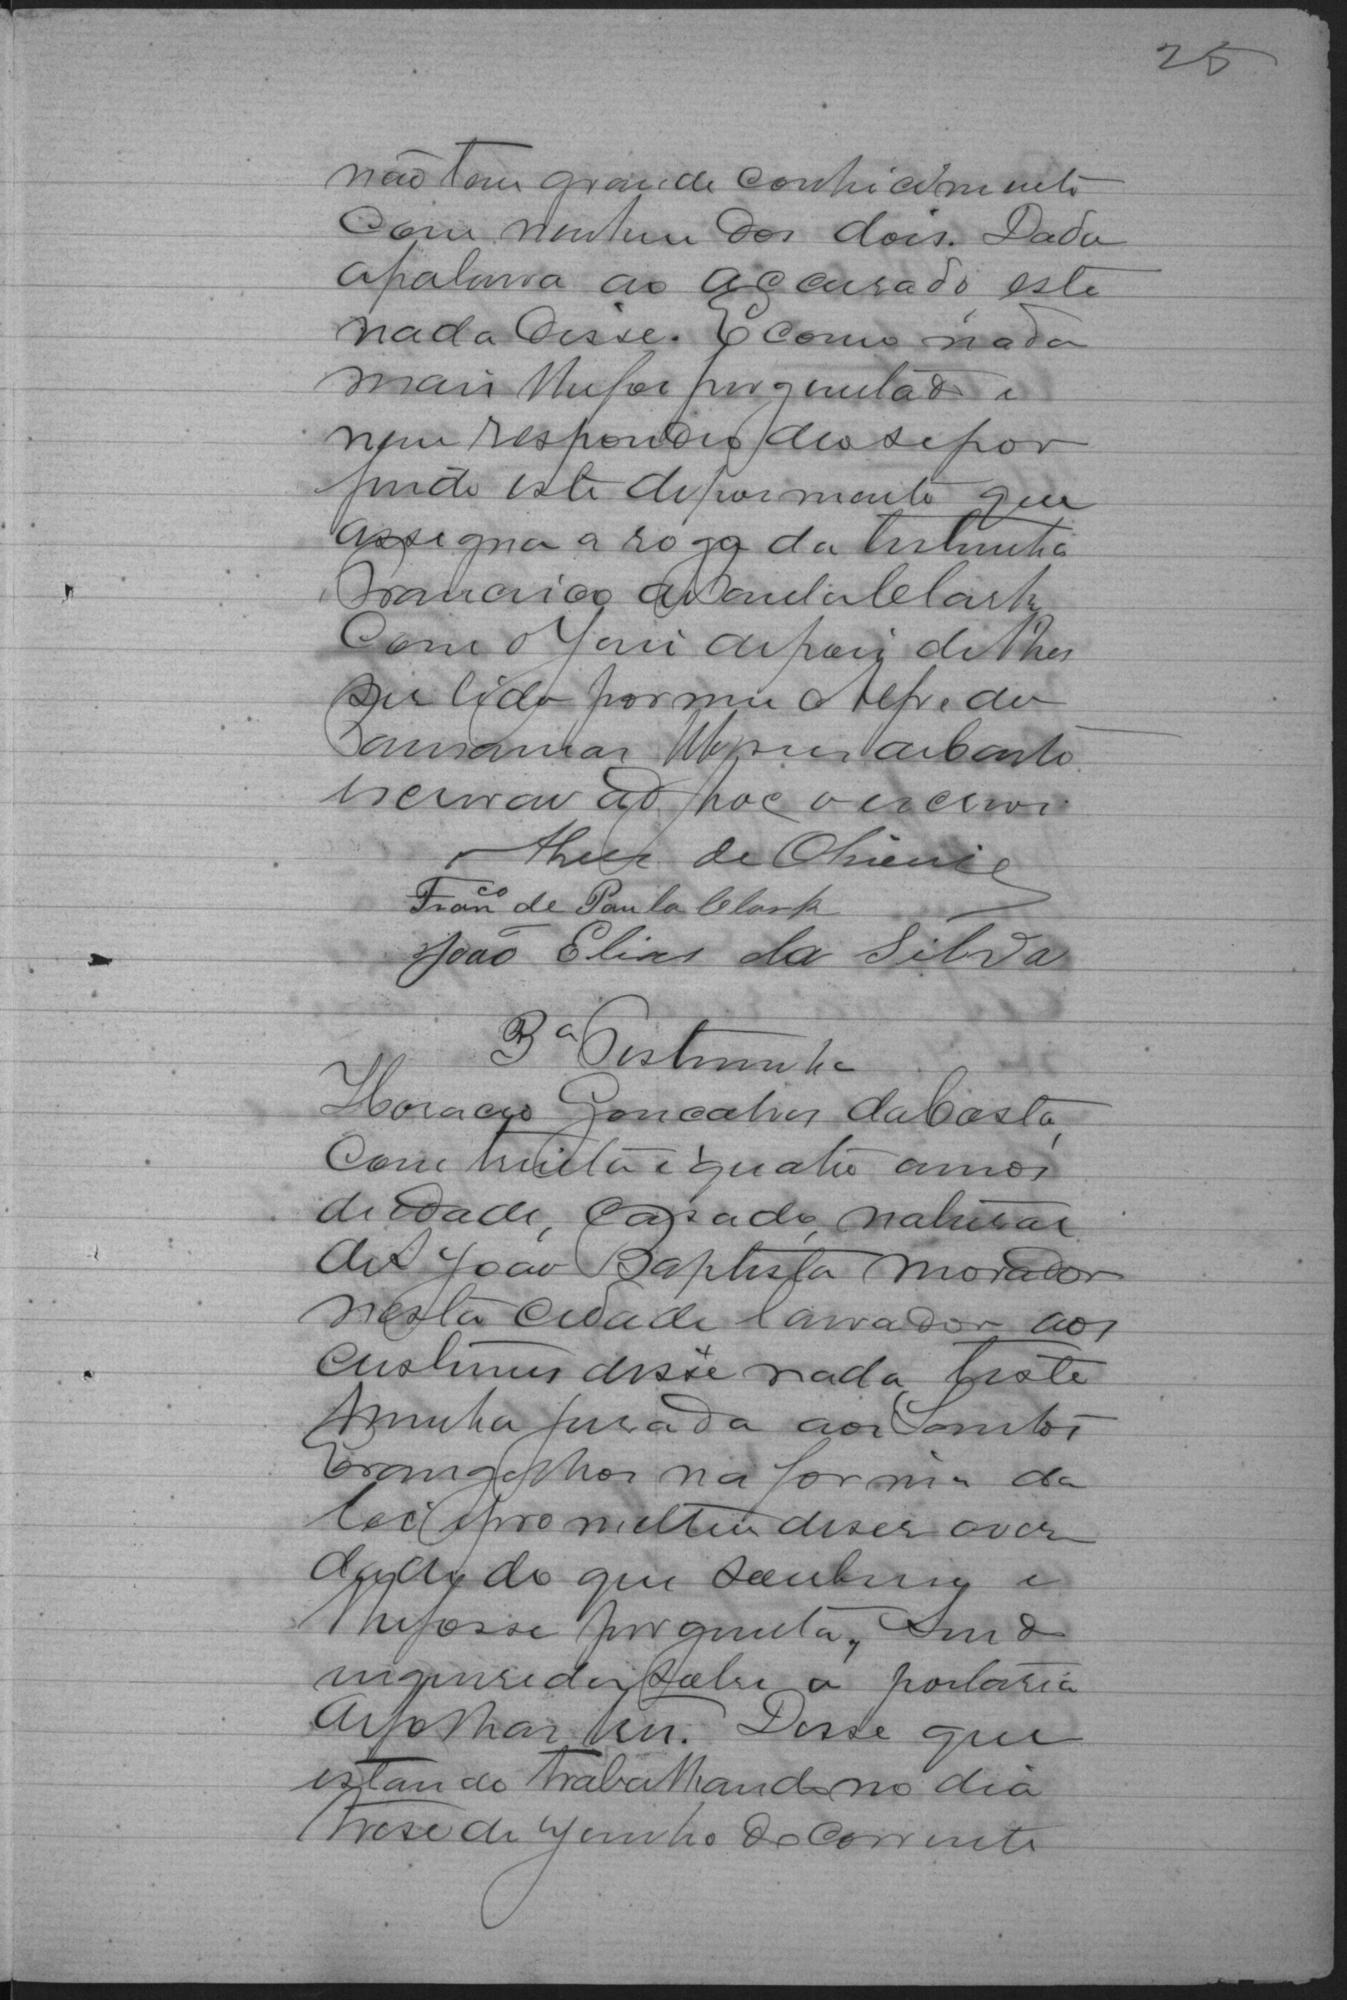 25
não tem grande conhicimento
com nenhum dos dois. Dada
apalavra ao accusado este
nada disse. E como nada
mais lhe foi preguntado e
nem respondeo deose por
findo este depoimento que
assigna a rogo da testimunha
Francisco de Paula Clark
Com o Juiz depois de lhes
ser lido por mim Alfredo
escrivão ad hoc o escrevi.
de Oliveira
Franco de Paula Clark
João Elias da Silva
3a Testimunha
Horacio Goncalves da Costa,
Com trinta e quatro annos
de edade, casado, natural
de S João Baptista morador
nesta cidade lavrador aos
custumes disse nada, teste
munha jurada aos Santos
Evangelhos na forma da
lei e prometteu diser aver
dade do que soubesse e
lhe fosse preguntá, Sendo
inquerida sobre a portaria
de folhas tres. Disse que
estando trabalhando no dia
trese de Junho do corrente